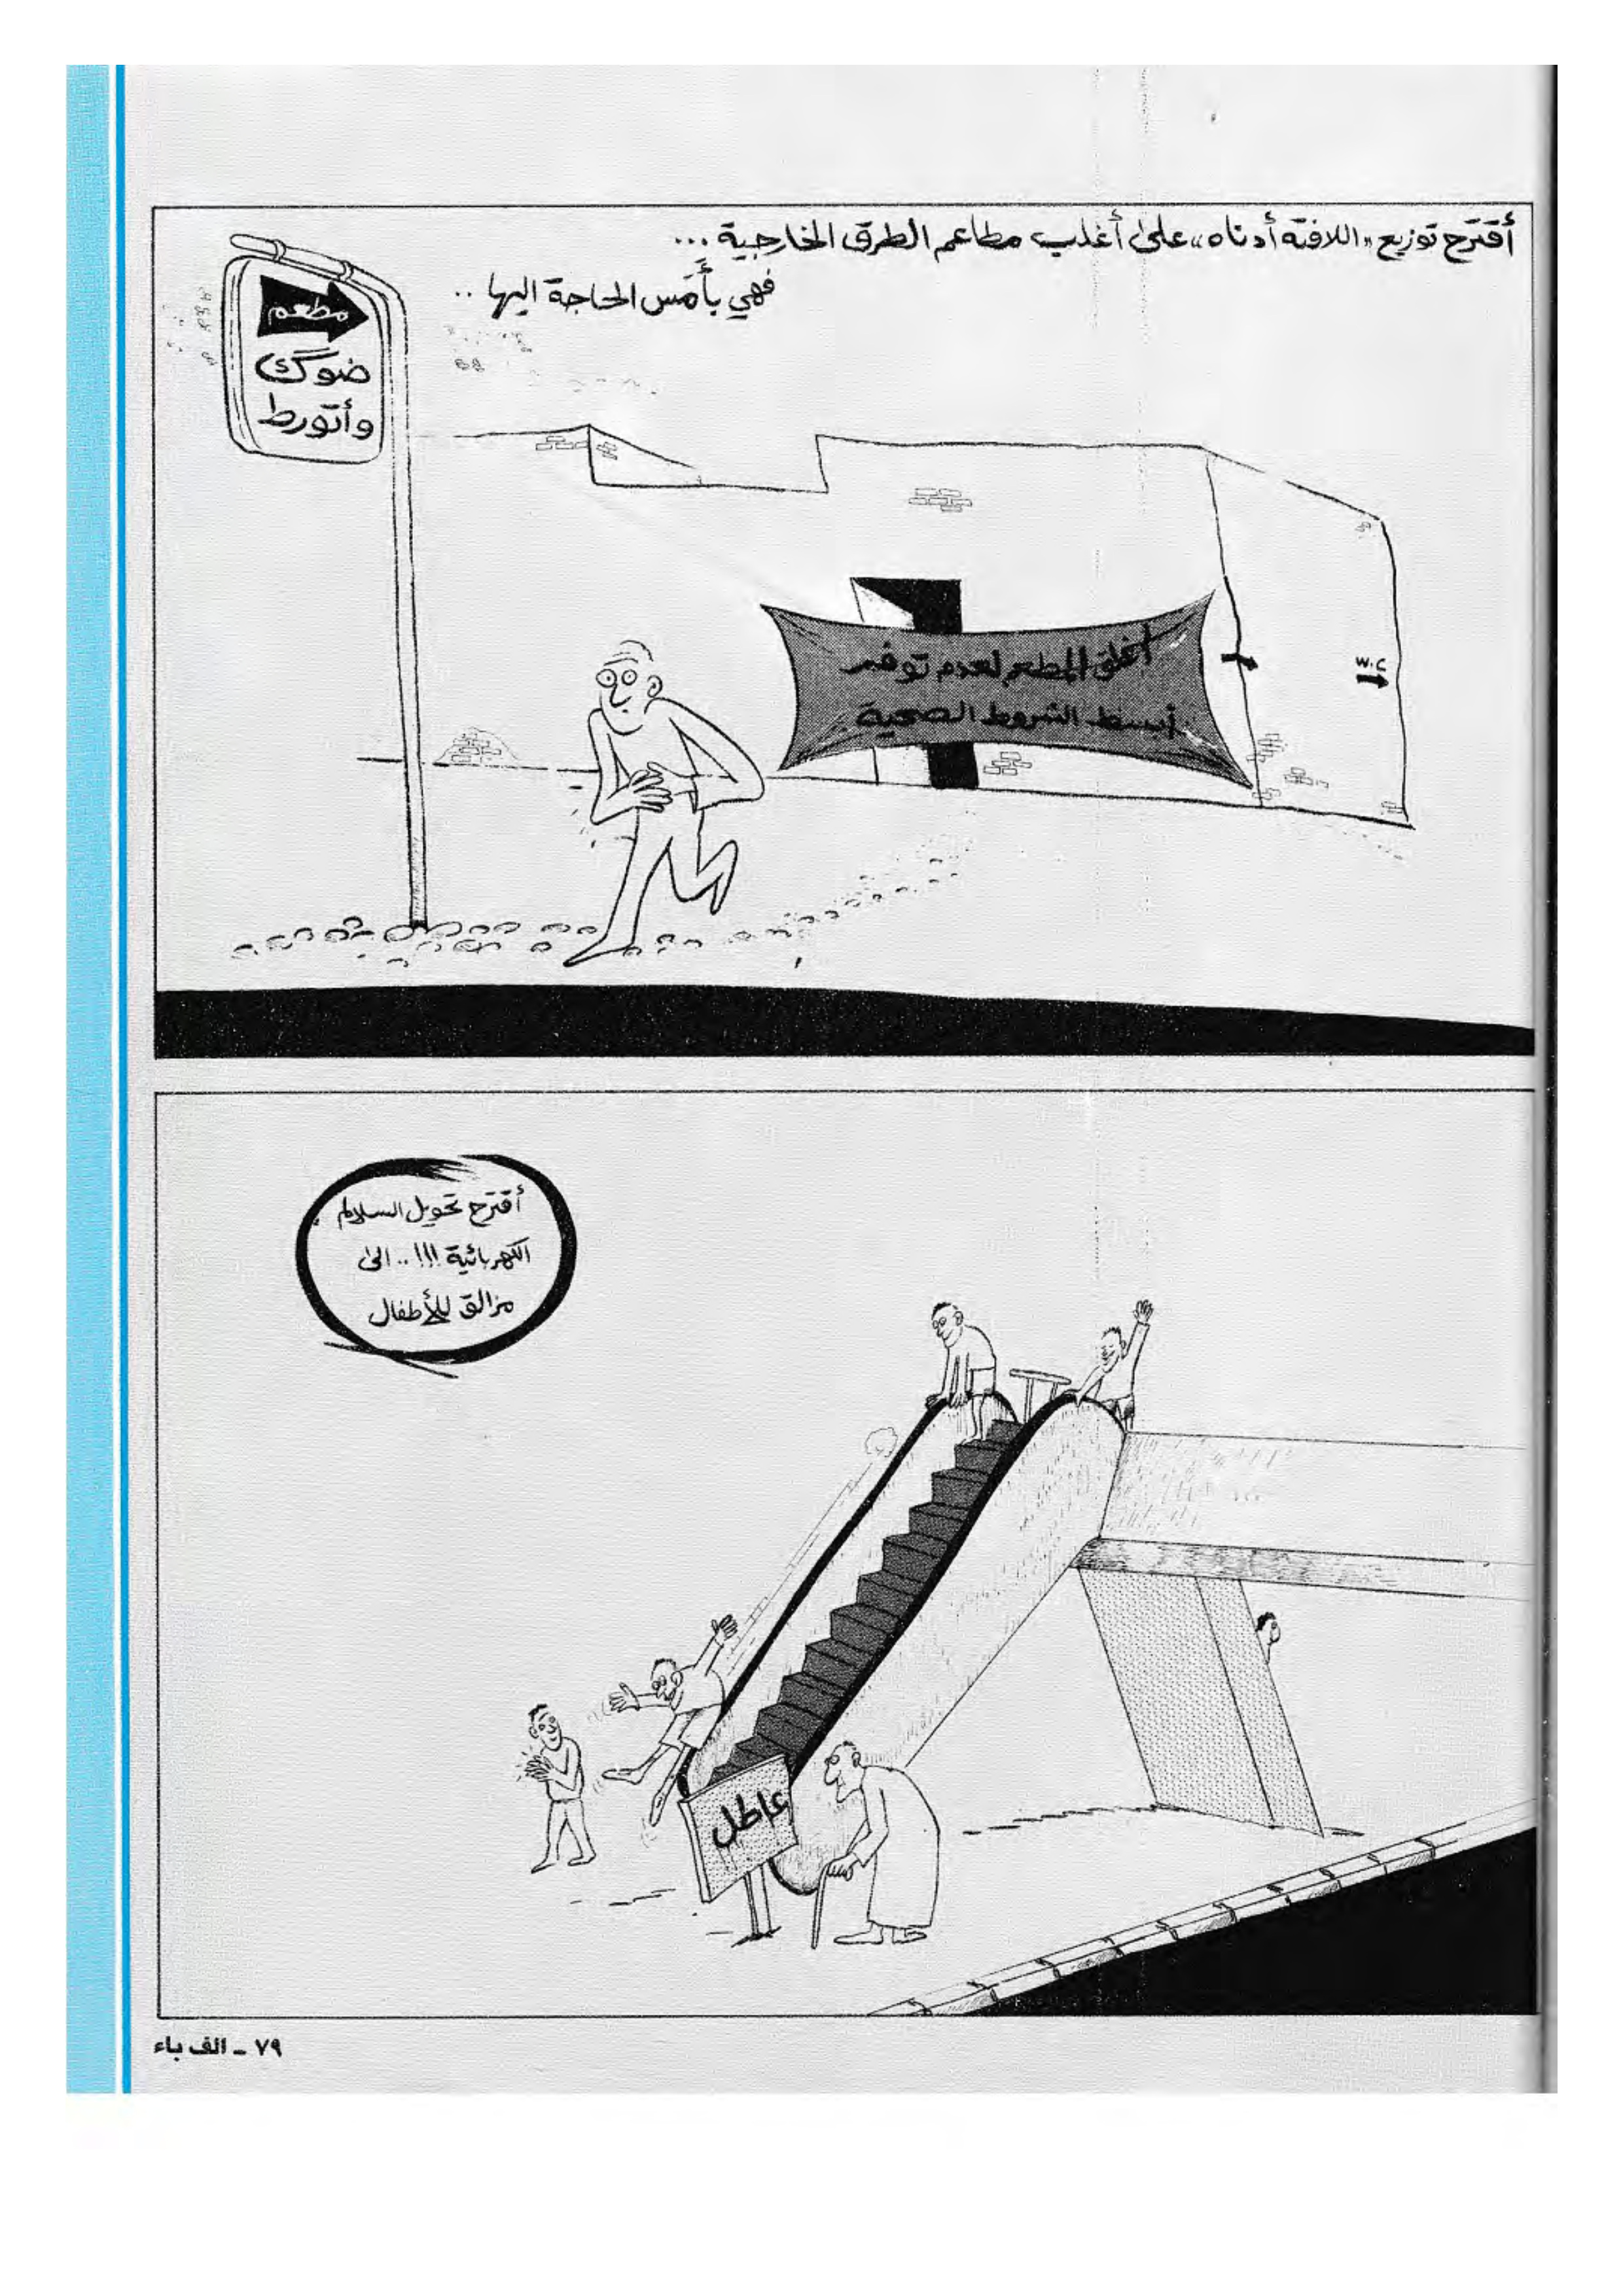 أقترح توزيع «اللافتة أدناه» على أغلب مطاعم الطرق الخارجية...
فهي بأَمَس الحاجة اليها ..
مطعم
ضوگ
وأتورط
أغلق المطعم لعدم توفر
أبسط الشروط الصحية
W.C
أقترح تحويل السلالم
الكهربائية !!! .. الى
مزالق للأطفال
عاطل
٧٩ - الف باء